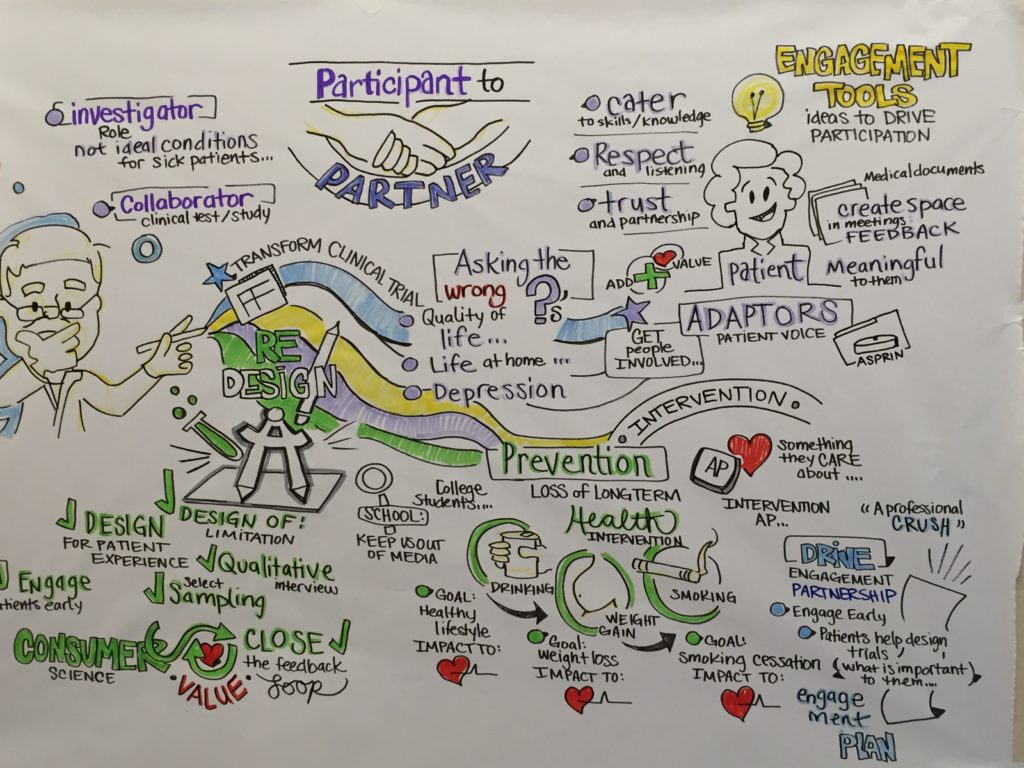 investigator
Role
not ideal conditions
for sick patients...
Collaborator
clinical test/study
Participant to
PARTNER
cater
to skills/knowledge
Respect
and listening
trust
and partnership
ENGAGEMENT
TOOLS
ideas to DRIVE
PARTICIPATION
Medical documents
create space
in meetings
FEEDBACK
Meaningful
to them
patient
ADD
VALUE
ADAPTORS
PATIENT VOICE
ASPRIN
TRANSFORM CLINICAL TRIAL
Asking the
wrong ?s
Quality of
life...
Life at home ...
Depression
GET
people
INVOLVED...
RE
DESIGN
INTERVENTION
Prevention
LOSS of LONGTERM
Health
INTERVENTION
AP
something
they CARE
about ....
INTERVENTION
AP...
"A professional
CRUSH"
DESIGN
FOR PATIENT
EXPERIENCE
DESIGN OF:
LIMITATION
Qualitative
interview
Engage
tients early
select
Sampling
CONSUMER
SCIENCE
VALUE
CLOSE
the feedback
loop
College
Students...
SCHOOL:
KEEP US OUT
OF MEDIA
DRINKING
GOAL:
Healthy
lifestyle
IMPACT TO:
WEIGHT
GAIN
Goal:
weight loss
IMPACT TO:
SMOKING
GOAL:
smoking cessation
IMPACT TO:
DRIVE
ENGAGEMENT
PARTNERSHIP
Engage Early
Patients help design
trials
(what is important)
to them...
engage
ment
PLAN